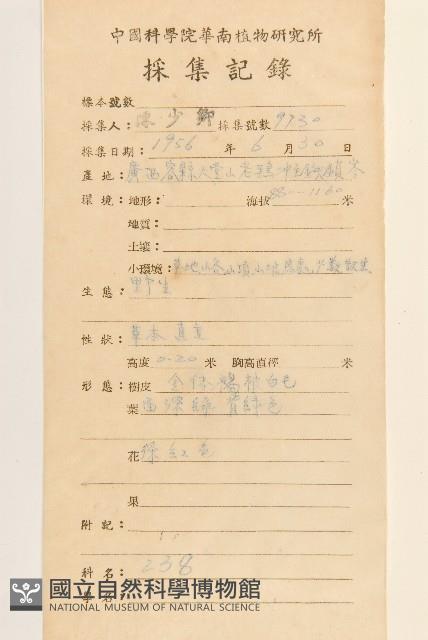 中國科學院華南植物研究所
採集記錄
標本號數
採集人: 陳少卿 採集號數 9730
採集日期: 1956 年 6 月 30 日
產地: 廣西容縣天堂山
環境: 地形: 海拔 880-1160 米
地質:
土壤:
小環境: 草地山谷山頂山坡
生態: 野生
性狀: 草本直立
高度 0.20 米 胸高直徑 米
形態: 樹皮 全体 被白毛
葉 面深綠背綠色
花 深紅色
果
附記:
科名: 238
國立自然科學博物館
NATIONAL MUSEUM OF NATURAL SCIENCE